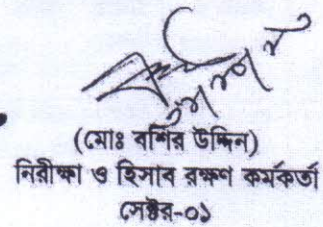 (মোঃ বশির উদ্দিন)
নিরীক্ষা ও হিসাব রক্ষণ কর্মকর্তা
সেক্টর-০১